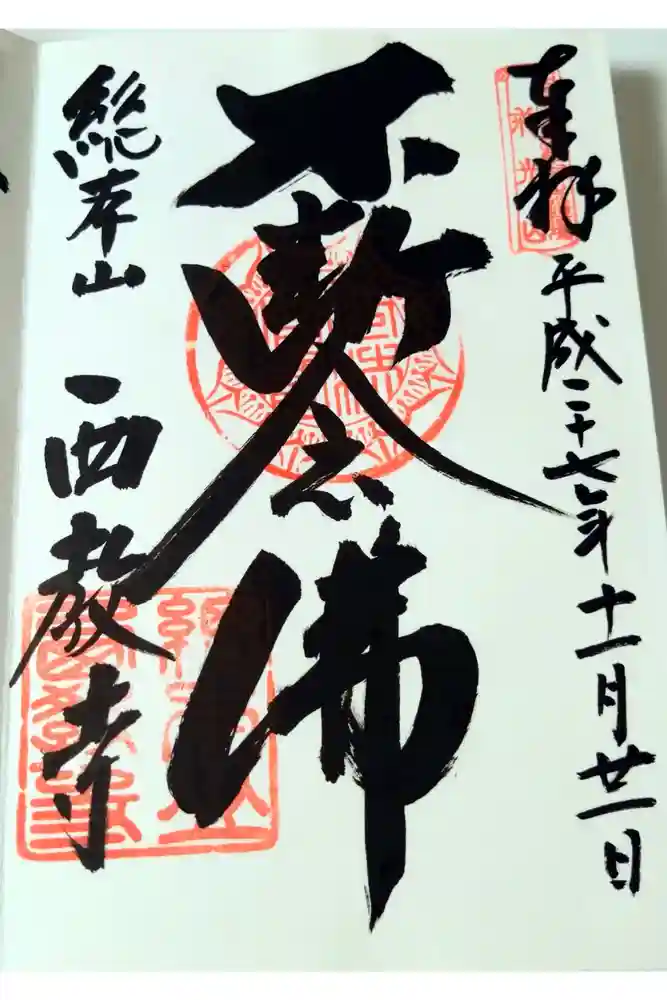 奉拜
平成二十七年十一月廿一日
不断念佛
総本山
西教寺